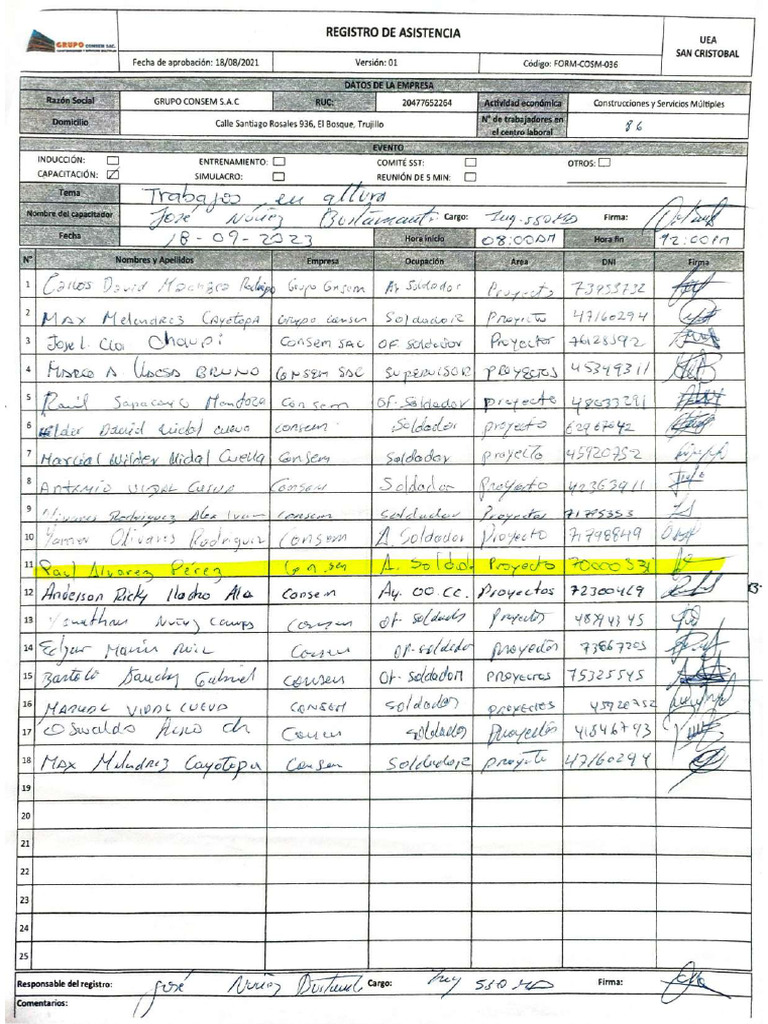 GRUPO CONSEM SAC.
REGISTRO DE ASISTENCIA
UEA
SAN CRISTOBAL
Fecha de aprobación: 18/08/2021 Versión: 01 Código: FORM-COSM-036
DATOS DE LA EMPRESA
Razón Social GRUPO CONSEM S.A.C RUC: 20477652264 Actividad económica Construcciones y Servicios Múltiples
Domicilio Calle Santiago Rosales 936, El Bosque, Trujillo N° de trabajadores en el centro laboral 86
EVENTO
INDUCCIÓN: ENTRENAMIENTO: COMITÉ SST: OTROS:
CAPACITACIÓN: SIMULACRO: REUNIÓN DE 5 MIN:
Tema Trabajos en altura
Nombre del capacitador José Núñez Bustamante Cargo: Ing-SSOMA Firma:
Fecha 18-09-2023 Hora inicio 08:00AM Hora fin 12:00PM
N° Nombres y Apellidos Empresa Ocupación Area DNI Firma
1 Carlos David Rodrigo Grupo Consem Ay Soldador Proyecto 73953732
2 Max Melendrez Cayotopa Grupo Consem Soldador Proyecto 47160294
3 Jose L. Chaupi Consem SAC OF. Soldador Proyector 76128592
4 Marco A. BRUNO CONSEM SAC SUPERVISOR PROYECTOS 45349311
5 Raúl Mendoza Consem Of. Soldador proyecto 48633291
6 David Vidal cueva consem Soldador proyecto
7 Marcial Wilder Vidal Cuella Consem Soldador proyecto 45920752
8 Antemio VIDAL Cueva Consem Soldador Proyecto 42363911
9 Olivares Rodriguez Alex Ivan consem soldador Proyectos 71785353
10 Olivares Rodriguez Consem A Soldador Proyecto 71798849
11 Paul Alvarez Pérez Consem A. Soldad Proyecto 7000033
12 Anderson Ricky Consem Ay. OO.CC. Proyectos 72300469
13 Yonathan Nuñez Campos Consem Of-soldado Proyectos 48794345
14 Edgar Marin Ruiz Consem OF-soldador Proyectos 73867205
15 Bartolo Sanchez Gabriel Consem Of-soldador Proyectos 75325545
16 Manual VIDAL CUEVA CONSEM Soldador PROYECTOS 45920752
17 Oswaldo Consem Soldador Proyectos 41846793
18 Max Melendrez Cayotopa Consem Soldador proyecto 47160294
19
20
21
22
23
24
25
Responsable del registro: José Núñez Bustamante Cargo: Ing SSOMA Firma:
Comentarios: